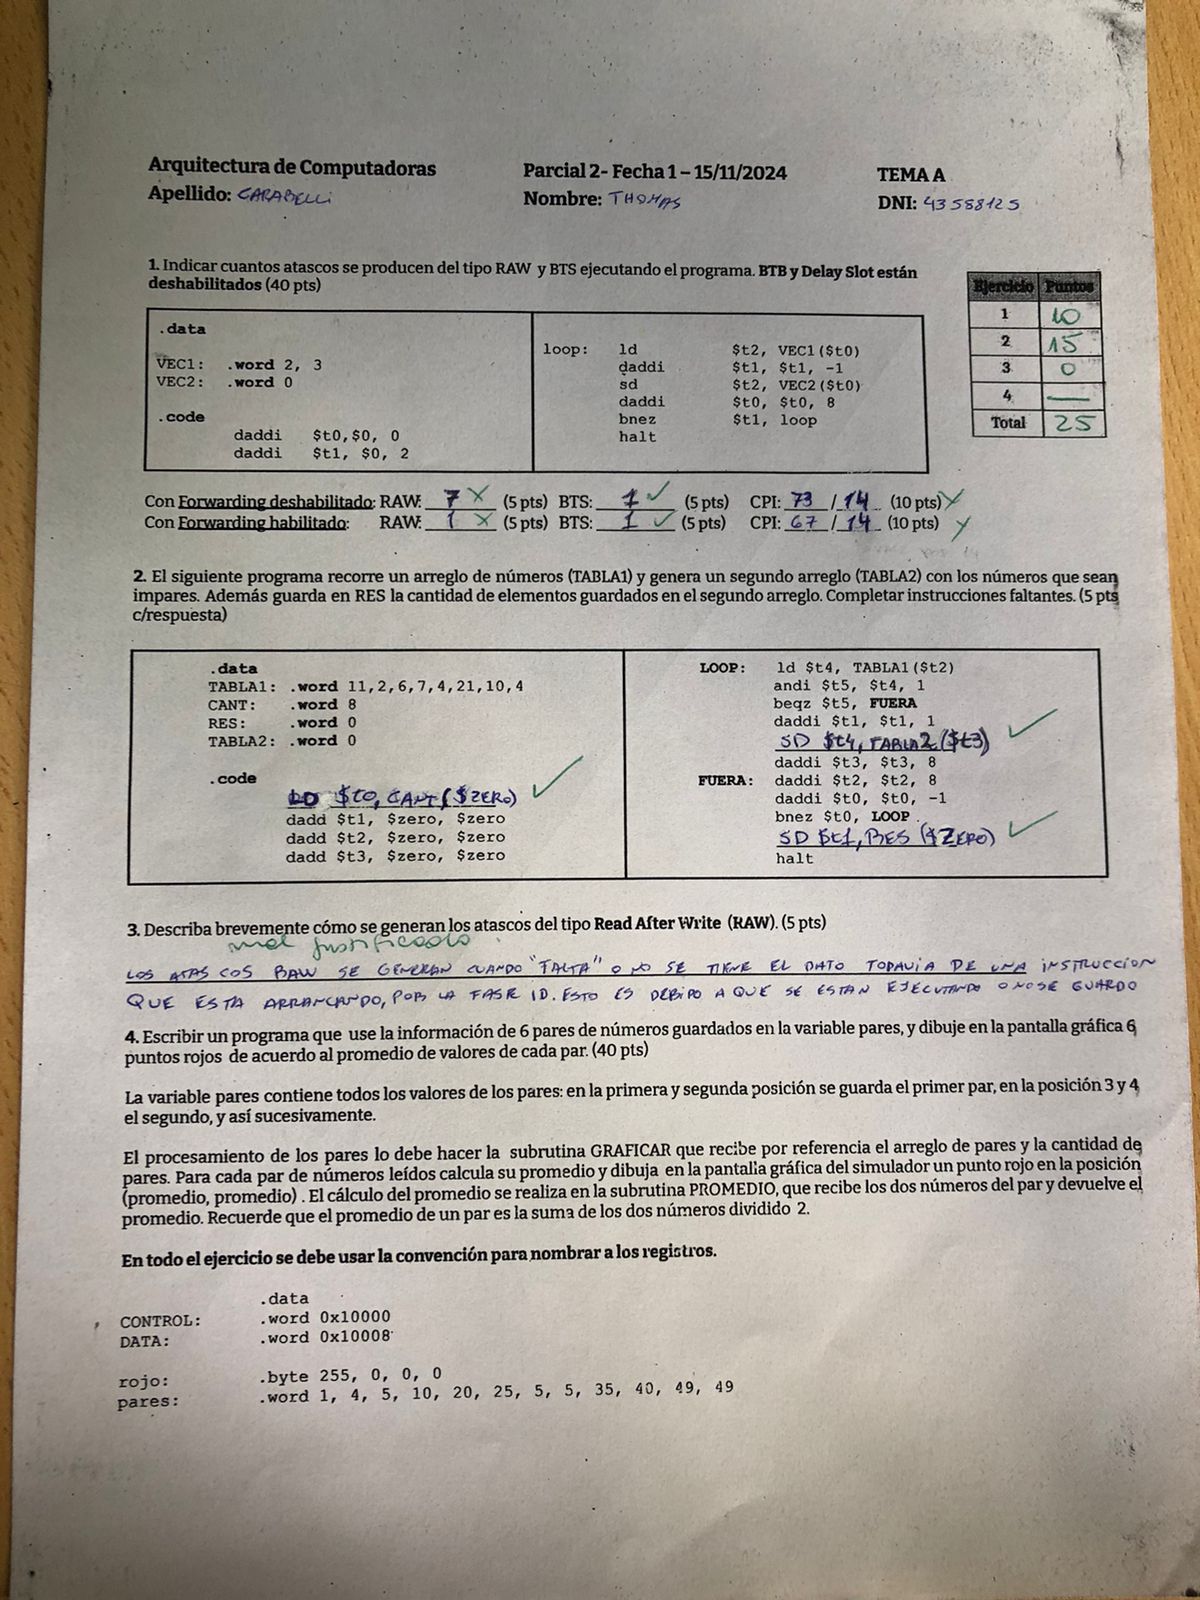 Arquitectura de Computadoras Parcial 2- Fecha 1 – 15/11/2024 TEMA A
Apellido: CARABELLI Nombre: THOMAS DNI: 43588125
1. Indicar cuantos atascos se producen del tipo RAW y BTS ejecutando el programa. BTB y Delay Slot están
deshabilitados (40 pts)
Ejercicio Puntos
1 10
2 15
3 0
4 —
Total 25
.data
VEC1: .word 2, 3
VEC2: .word 0
.code
daddi $t0,$0, 0
daddi $t1, $0, 2
loop: ld $t2, VEC1($t0)
daddi $t1, $t1, -1
sd $t2, VEC2($t0)
daddi $t0, $t0, 8
bnez $t1, loop
halt
Con Forwarding deshabilitado: RAW: 7 X (5 pts) BTS: 1 ✓ (5 pts) CPI: 73 / 14 (10 pts) X
Con Forwarding habilitado: RAW: 1 X (5 pts) BTS: 1 ✓ (5 pts) CPI: 67 / 14 (10 pts) X
2. El siguiente programa recorre un arreglo de números (TABLA1) y genera un segundo arreglo (TABLA2) con los números que sean
impares. Además guarda en RES la cantidad de elementos guardados en el segundo arreglo. Completar instrucciones faltantes. (5 pts
c/respuesta)
.data
TABLA1: .word 11,2,6,7,4,21,10,4
CANT: .word 8
RES: .word 0
TABLA2: .word 0
.code
LD $t0, CANT($ZERO) ✓
dadd $t1, $zero, $zero
dadd $t2, $zero, $zero
dadd $t3, $zero, $zero
LOOP: ld $t4, TABLA1($t2)
andi $t5, $t4, 1
beqz $t5, FUERA
daddi $t1, $t1, 1
SD $t4, TABLA2($t3) ✓
daddi $t3, $t3, 8
FUERA: daddi $t2, $t2, 8
daddi $t0, $t0, -1
bnez $t0, LOOP
SD $t1, RES ($ZERO) ✓
halt
3. Describa brevemente cómo se generan los atascos del tipo Read After Write (RAW). (5 pts)
mal justificado
LOS ATASCOS RAW SE GENERAN CUANDO "FALTA" O NO SE TIENE EL DATO TODAVIA DE UNA INSTRUCCION
QUE ESTA ARRANCANDO, POR LA FASE ID. ESTO ES DEBIDO A QUE SE ESTAN EJECUTANDO O NO SE GUARDO
4. Escribir un programa que use la información de 6 pares de números guardados en la variable pares, y dibuje en la pantalla gráfica 6
puntos rojos de acuerdo al promedio de valores de cada par. (40 pts)
La variable pares contiene todos los valores de los pares: en la primera y segunda posición se guarda el primer par, en la posición 3 y 4
el segundo, y así sucesivamente.
El procesamiento de los pares lo debe hacer la subrutina GRAFICAR que recibe por referencia el arreglo de pares y la cantidad de
pares. Para cada par de números leídos calcula su promedio y dibuja en la pantalla gráfica del simulador un punto rojo en la posición
(promedio, promedio) . El cálculo del promedio se realiza en la subrutina PROMEDIO, que recibe los dos números del par y devuelve el
promedio. Recuerde que el promedio de un par es la suma de los dos números dividido 2.
En todo el ejercicio se debe usar la convención para nombrar a los registros.
.data
CONTROL: .word 0x10000
DATA: .word 0x10008
rojo: .byte 255, 0, 0, 0
pares: .word 1, 4, 5, 10, 20, 25, 5, 5, 35, 40, 49, 49